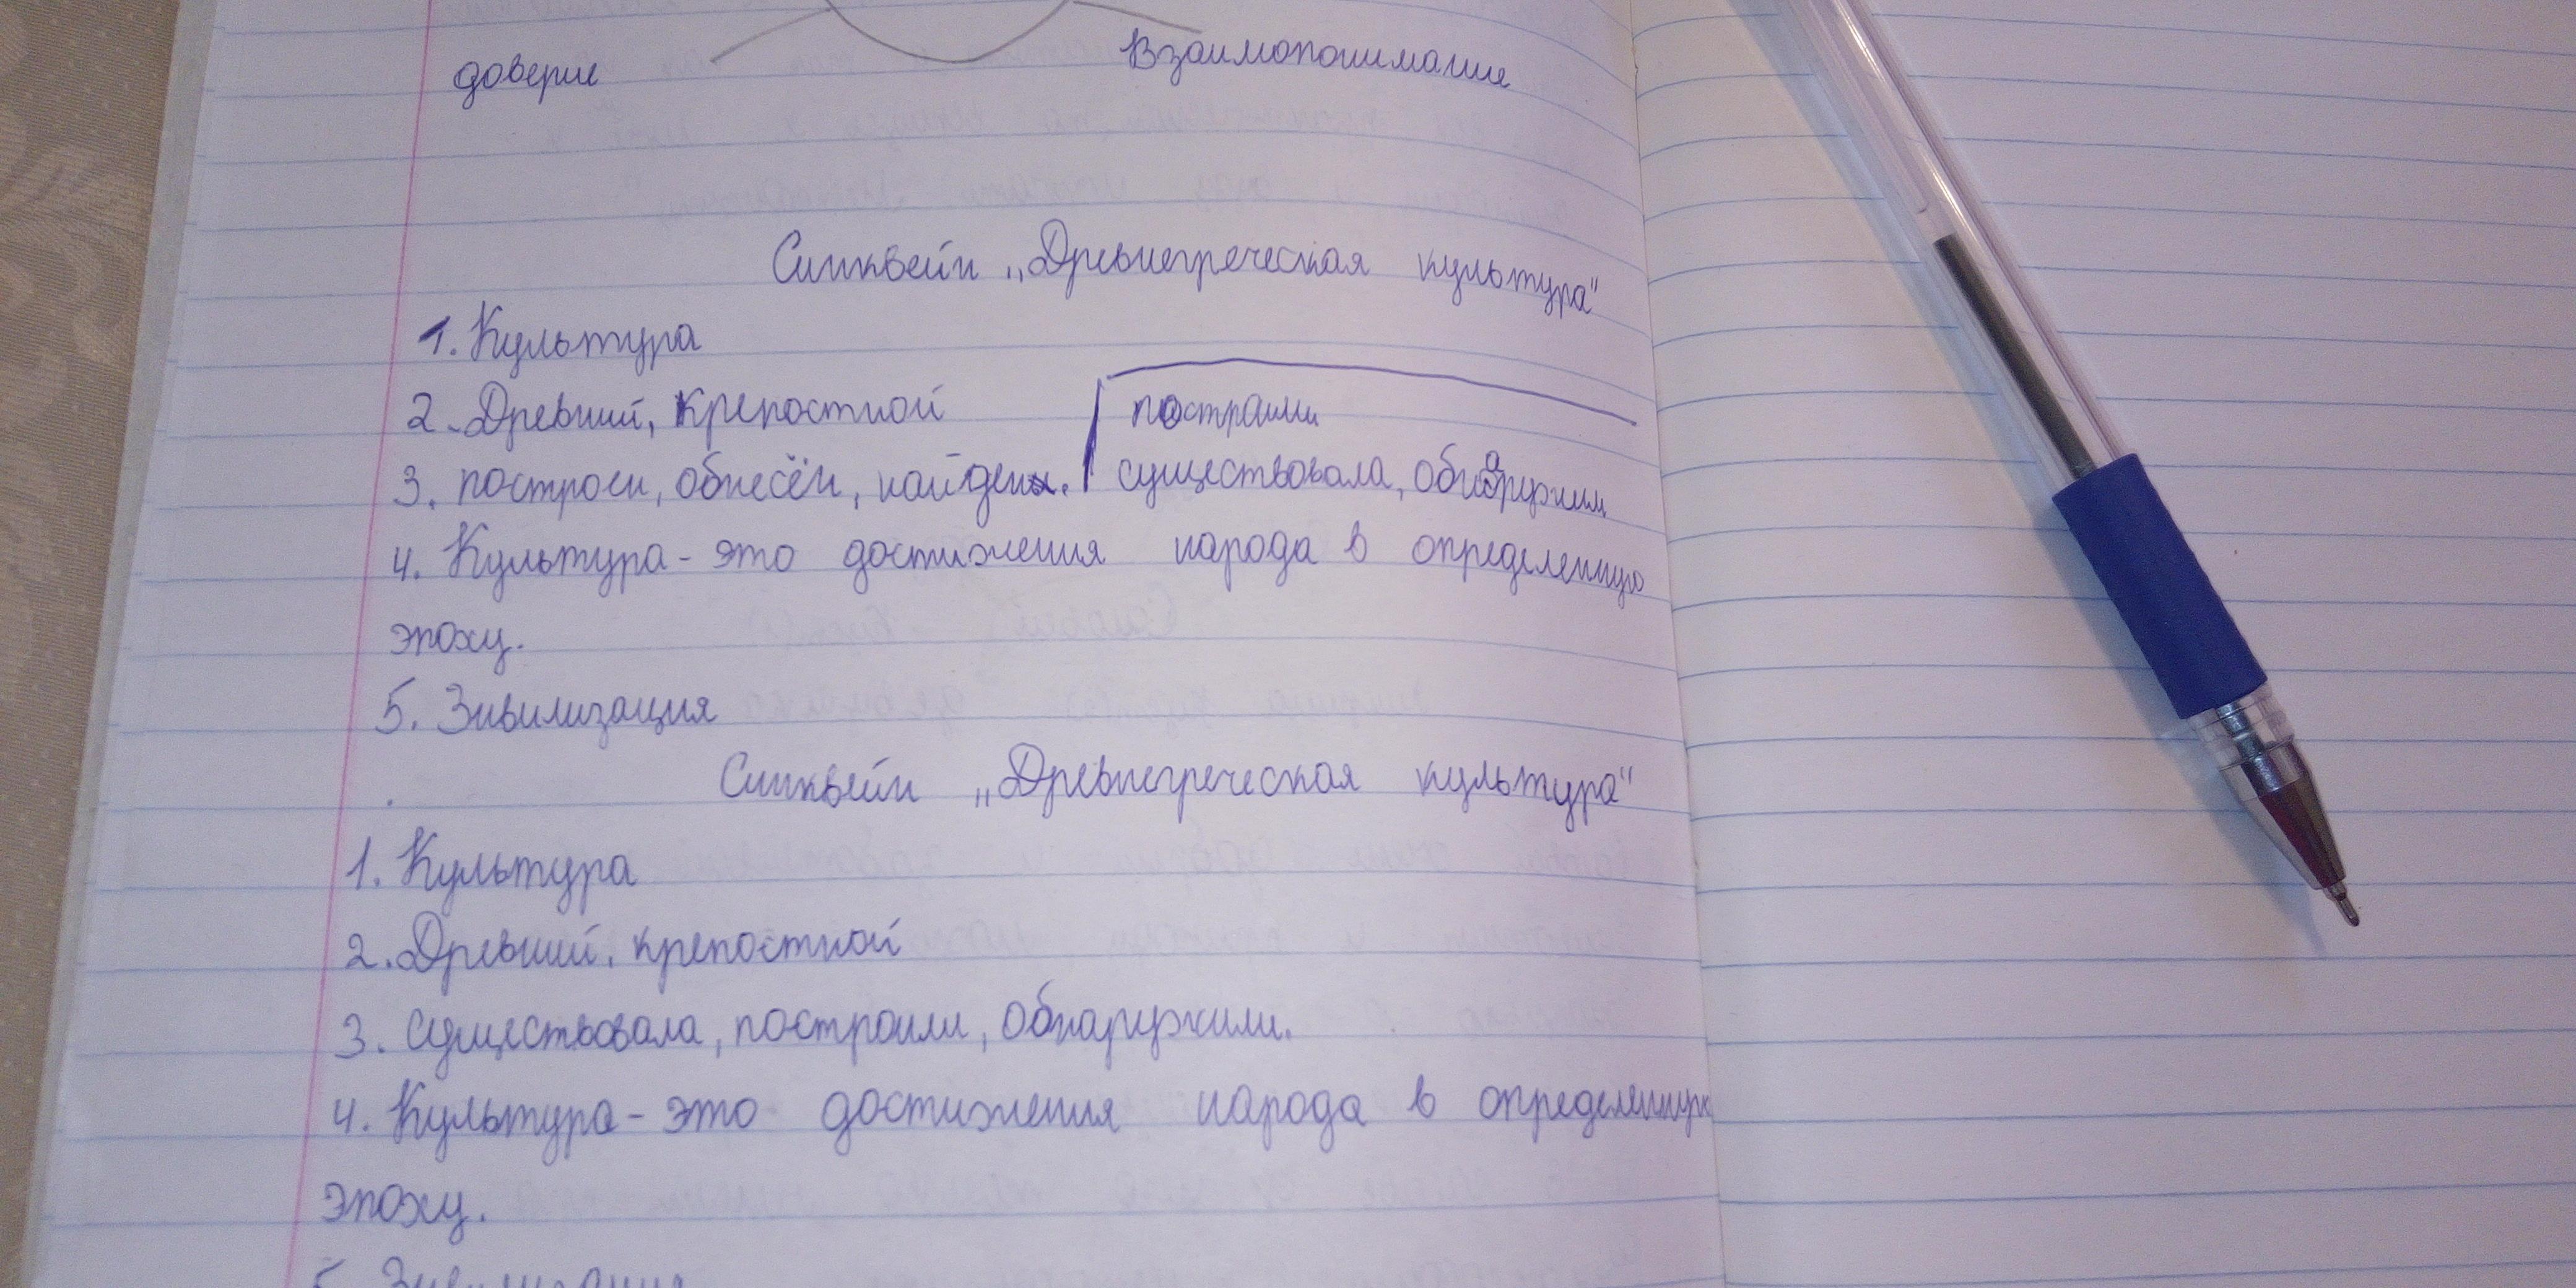 доверие Взаимопонимание
Синквейн „Древнегреческая культура"
1. Культура
2. Древний, крепостной
построили
3. построен, обнесён, найден. существовала, обнаружили
4. Культура - это достижения народа в определенную
эпоху.
5. Зивилизация
Синквейн „Древнегреческая культура"
1. Культура
2. Древний, крепостной
3. существовала, построили, обнаружили.
4. Культура - это достижения народа в определенную
эпоху.
5. Зивилизация